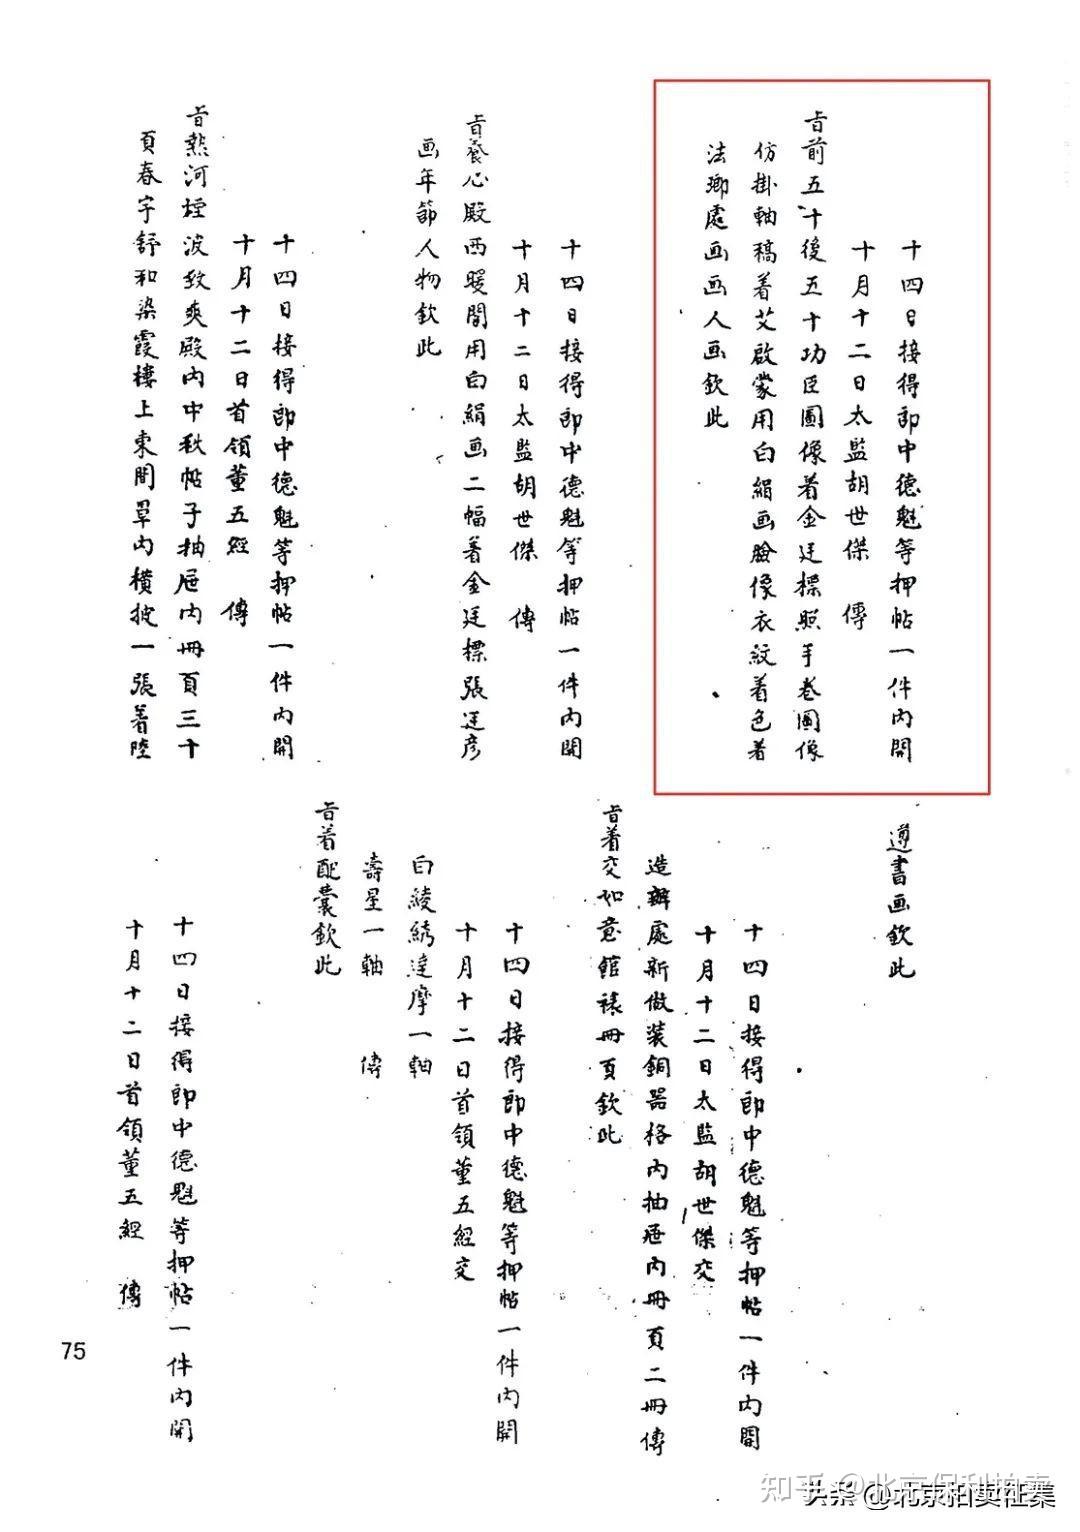 十四日接得郎中德魁等押帖一件內開
十月十二日太監胡世傑 傳
旨前五十後五十功臣圖像着金廷標照手卷圖像
仿掛軸稿着艾啟蒙用白絹画臉像衣紋着色着
法瑯處画画人画欽此
十四日接得郎中德魁等押帖一件內開
十月十二日太監胡世傑 傳
旨養心殿西暖閣用白絹画二幅着金廷標張廷彥
画年節人物欽此
十四日接得郎中德魁等押帖一件內開
十月十二日首領董五經 傳
旨熱河煙波致爽殿內中秋帖子抽屜內冊頁三十
頁春宇舒和染霞樓上東間罩內橫披一張着陸
遵書画欽此
十四日接得郎中德魁等押帖一件內開
十月十二日太監胡世傑交
造辦處新做裝銅器格內抽屜內冊頁二冊傳
旨着交如意館裱冊頁欽此
十四日接得郎中德魁等押帖一件內開
十月十二日首領董五經交
白綾綉達摩一軸
壽星一軸 傳
旨着配囊欽此
十四日接得郎中德魁等押帖一件內開
十月十二日首領董五經 傳
75
知乎 @北京保利拍卖
头条 @北京拍卖征集